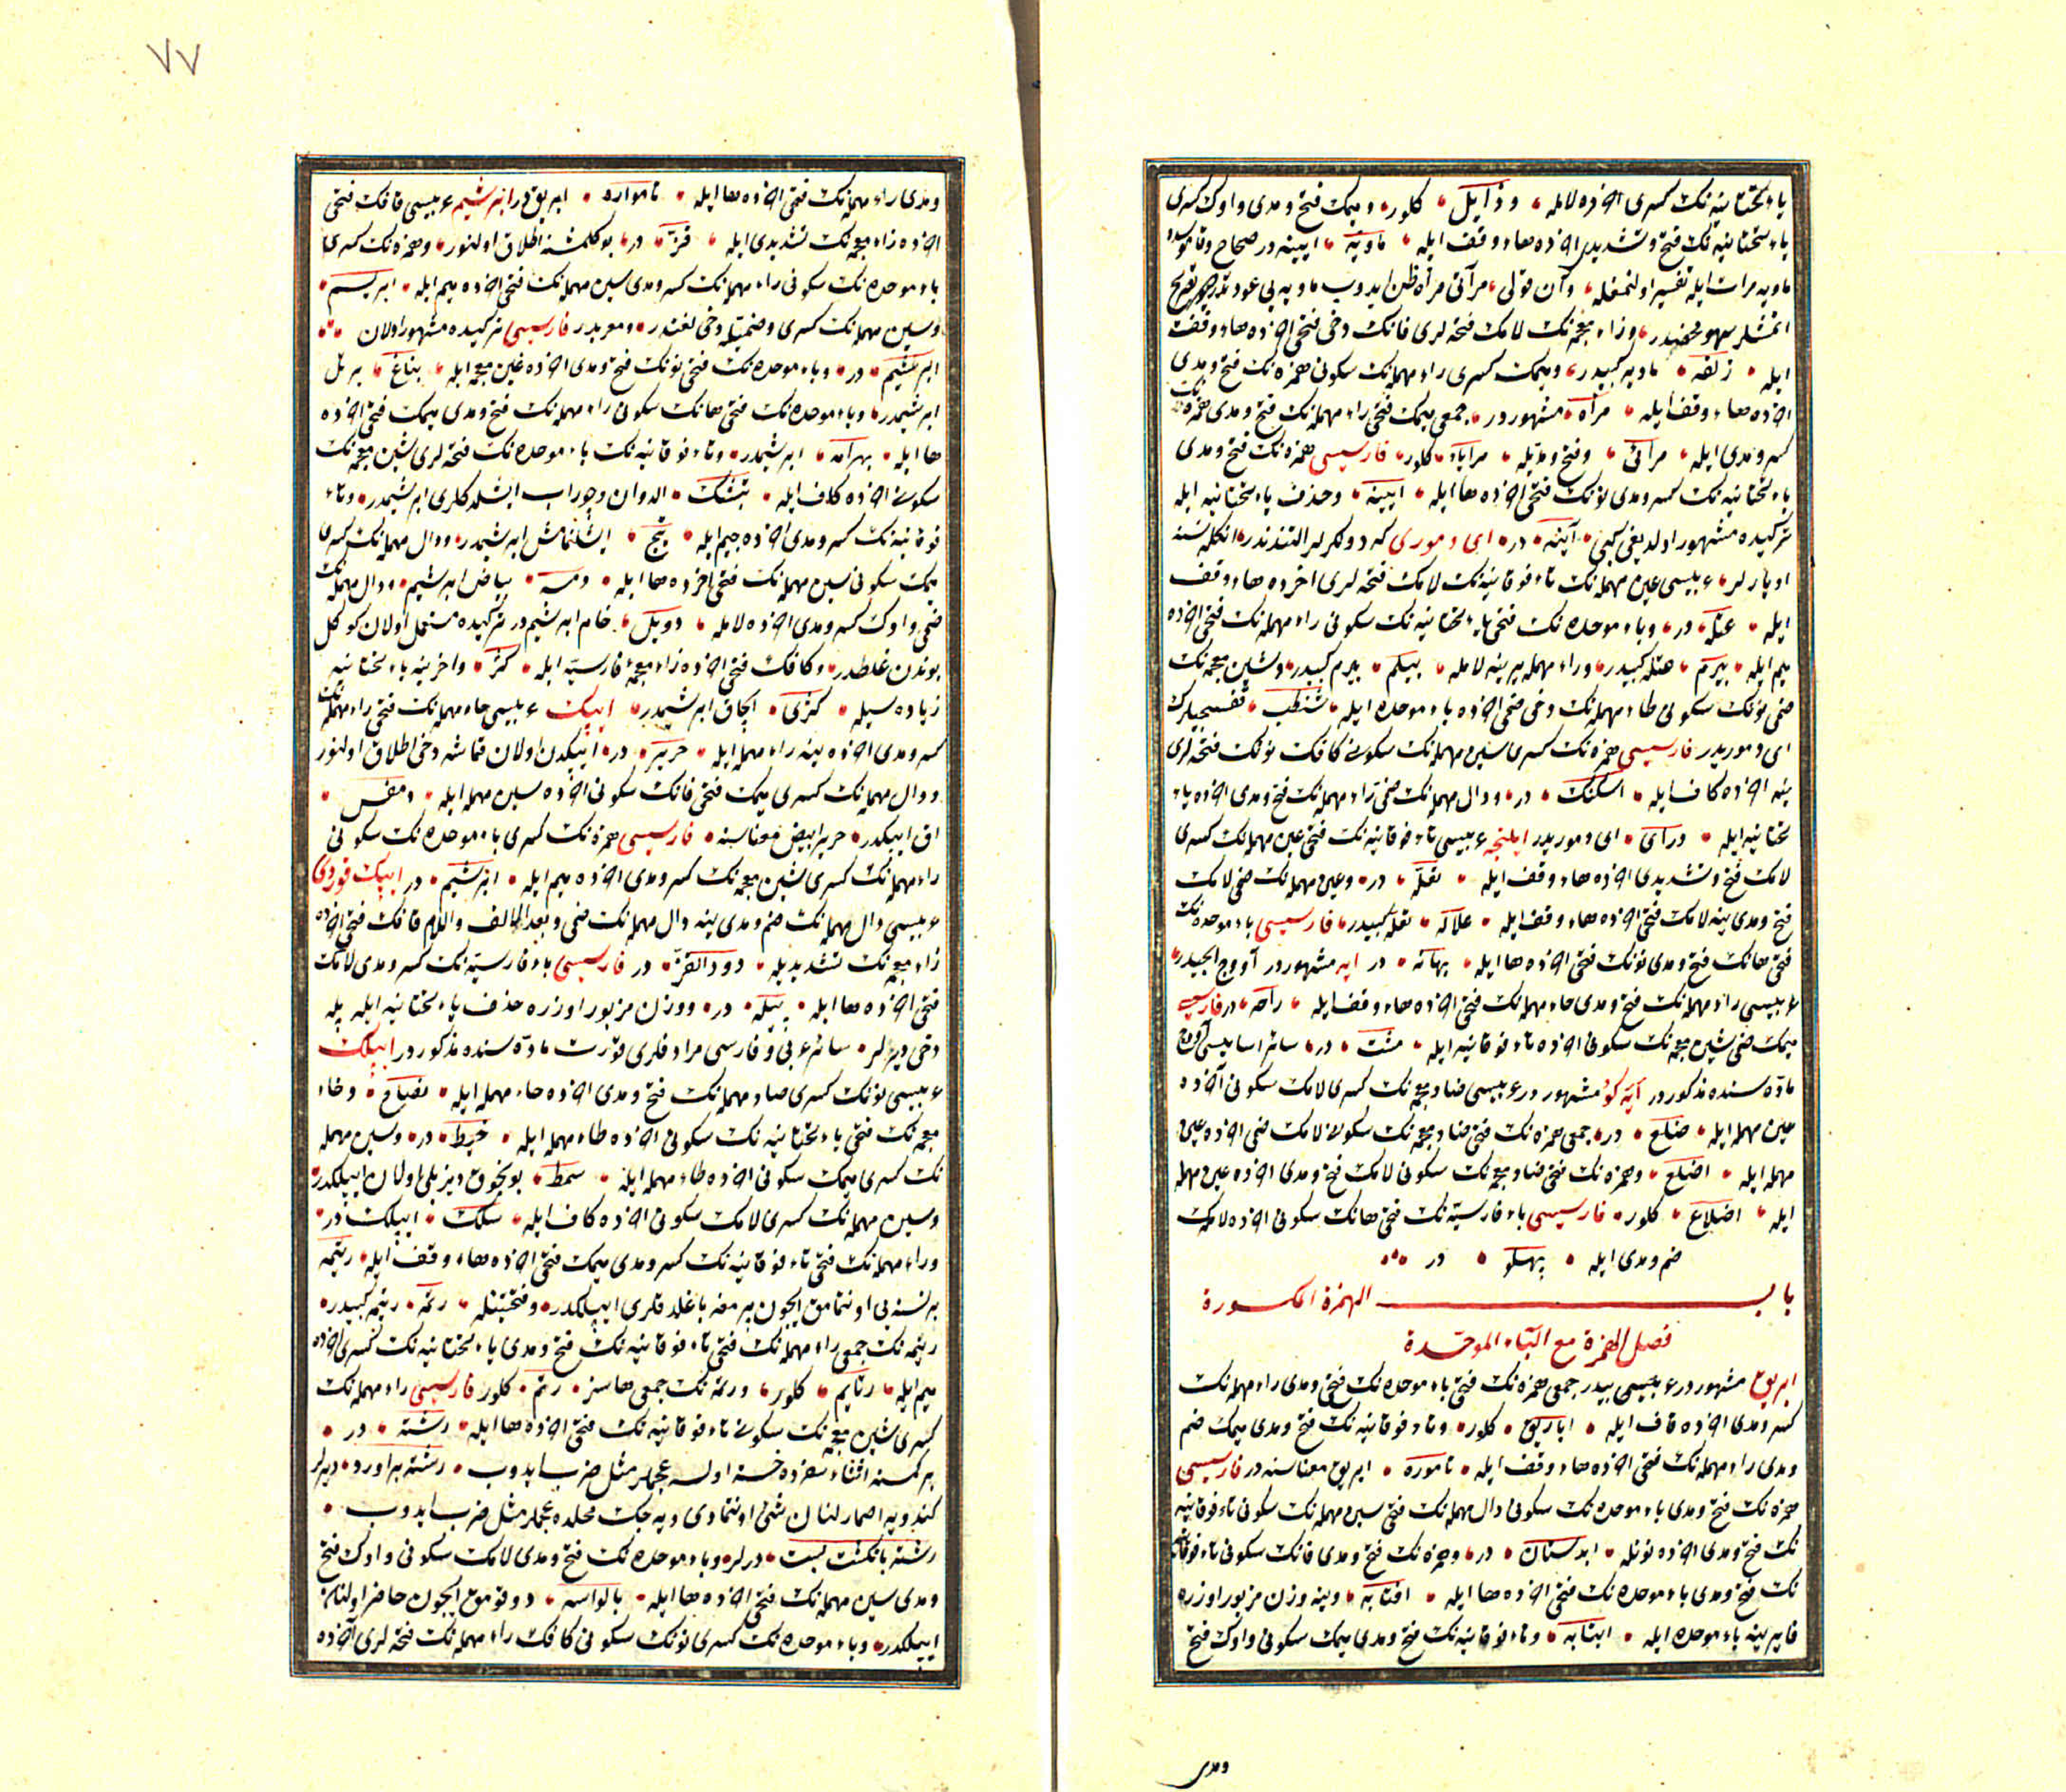 یاء تحتانیه نک کسری آخرده لامله وذآیل کلور ومیمک فتح ومدی واوک کسری
یاء تحتانیه نک فتح وتشدیدی آخرده هاء وقف ایله ماویه آیینه در صحاح وقاموسده
ماویه مرات ایله تفسیر اولنمغله
ایله زلفه ماویه کبیدر ومیمک کسری راء مهمله نک سکونی همزه نک فتح ومدی
آخرده هاء وقف ایله مرآة مشهوردر جمعی میمک فتحی راء مهمله نک فتح ومدی همزه نک
کسر ومدی ایله مرائی وفتح ومدیله مرایا کلور فارسیسی همزه نک فتح ومدی
یاء تحتانیه نک کسر ومدی نونک فتحی آخرده ها ایله آیینه وحذف یاء تحتانیه ایله
ترکیده مشهور اولدیغی کبی آینه در ای دموری که دولکرلر التنددر انکله نسنه
اویارلر عربیسی عین مهمله نک تاء فوقانیه نک لامک فتحه لری آخرده هاء وقف
ایله عتله در وباء موحده نک فتحی یاء تحتانیه نک سکونی راء مهمله نک فتحی آخرده
میم ایله بیرم عتله کبیدر وراء مهمله یرینه لامله بیلم بیرم کبیدر وشین معجمه نک
ضمی نونک سکونی طاء مهمله نک دخی ضمی آخرده باء موحده ایله شنطب
ای دموریدر فارسیسی همزه نک کسری سین مهمله نک سکونی کافک نونک فتحه لری
ینه آخرده کاف ایله اسکنک در ودال مهمله نک ضمی راء مهمله نک فتح ومدی آخرده یاء
تحتانیه ایله درآی ای دموریدر ایلنجه عربیسی تاء فوقانیه نک فتحی عین مهمله نک کسری
لامک فتح وتشدیدی آخرده هاء وقف ایله تعلّه در وعین مهمله نک ضمی لامک
فتح ومدی ینه لامک فتحی آخرده هاء وقف ایله علاله تعله کبیدر فارسیسی باء موحده نک
فتحی هانک فتح ومدی نونک فتحی آخرده ها ایله بهانه در ایه مشهوردر آووج ایچیدر
عربیسی راء مهمله نک فتح ومدی حاء مهمله نک فتحی آخرده هاء وقف ایله راحه در فارسیسی
میمک ضمی شین معجمه نک سکونی آخرده تاء فوقانیه ایله مشت در سائر اسامیسی آووج
ماده سنده مذکوردر ایه کو مشهوردر عربیسی ضاد معجمه نک کسری لامک سکونی آخرده
عین مهمله ایله ضلع در جمعی همزه نک فتحی ضاد معجمه نک سکونی لامک ضمی آخرده عین
مهمله ایله اضلع وهمزه نک فتحی ضاد معجمه نک سکونی لامک فتح ومدی آخرده عین مهمله
ایله اضلاع کلور فارسیسی باء فارسیه نک فتحی هانک سکونی آخرده لامک
ضم ومدی ایله پهلو در
باب الهمزة المکسورة
فصل الهمزة مع الباء الموحدة
ابریق مشهوردر عربیسی بیدر جمعی همزه نک فتحی باء موحده نک فتح ومدی راء مهمله نک
کسر ومدی آخرده قاف ایله اباریق کلور وتاء فوقانیه نک فتح ومدی میمک ضم
ومدی راء مهمله نک فتحی آخرده هاء وقف ایله تاموره ابریق معناسنه در فارسیسی
همزه نک فتح ومدی باء موحده نک سکونی دال مهمله نک فتحی سین مهمله نک سکونی تاء فوقانیه
نک فتح ومدی آخرده نونله آبدستان در وهمزه نک فتح ومدی فانک سکونی تاء فوقانیه
نک فتح ومدی باء موحده نک فتحی آخرده ها ایله آفتابه وینه وزن مزبور اوزره
فا یرینه باء موحده ایله آبتابه وتاء فوقانیه نک فتح ومدی میمک سکونی واوک فتح
ومدی
٧٧
ومدی راء مهمله نک فتحی آخرده ها ایله تامواره ابریقدر ابریشیم عربیسی قافک فتحی
آخرده زاء معجمه نک تشدیدی ایله قزّ در بو کلمه اطلاق اولنور وهمزه نک کسری
باء موحده نک سکونی راء مهمله نک کسر ومدی سین مهمله نک فتحی آخرده میم ایله ابریسم
وسین مهمله نک کسری وضمیله دخی لغتدر ومعربدر فارسیسی ترکیده مشهور اولان
ابریشیم در وباء موحده نک فتحی نونک فتح ومدی آخرده غین معجمه ایله بناغ بر تل
ابریشیمدر وباء موحده نک فتحی هانک سکونی راء مهمله نک فتح ومدی میمک فتحی آخرده
ها ایله بهرامه ابریشیمدر وتاء فوقانیه نک باء موحده نک فتحه لری شین معجمه نک
سکونی آخرده کاف ایله تبشک الدوان وچوراب ایشلدکلری ابریشیمدر وتاء
فوقانیه نک کسر ومدی آخرده جیم ایله تیج ایشلنمامش ابریشیمدر ودال مهمله نک کسری
میمک سکونی سین مهمله نک فتحی آخرده ها ایله دمسه بیاض ابریشیم ودال مهمله نک
ضمی واوک کسر ومدی آخرده لامله دویل خام ابریشیمدر ترکیده مستعمل اولان کوکل
بوندن غلطدر وکافک فتحی آخرده زاء معجمه فارسیه ایله کژ وآخرینه یاء تحتانیه
زیاده سیله کژی الچاق ابریشیمدر ایپک عربیسی حاء مهمله نک فتحی راء مهمله نک
کسر ومدی آخرده ینه راء مهمله ایله حریر در ایپکدن اولان قماشه دخی اطلاق اولنور
ودال مهمله نک کسری میمک فتحی قافک سکونی آخرده سین مهمله ایله دمقس
اق ایپکدر حریر ابیض معناسنه فارسیسی همزه نک کسری باء موحده نک سکونی
راء مهمله نک کسری شین معجمه نک کسر ومدی آخرده میم ایله ابریشیم در ایپک قوردی
عربیسی دال مهمله نک ضم ومدی ینه دال مهمله نک ضمی وبعده الالف واللام قافک فتحی آخرده
زاء معجمه نک تشدیدیله دود القزّ در فارسیسی باء فارسیه نک کسر ومدی لامک
فتحی آخرده ها ایله پیله در ووزن مزبور اوزره حذف یاء تحتانیه ایله پله
دخی دیرلر سائر عربی وفارسی مرادفلری قورت ماده سنده مذکوردر ایپلک
عربیسی نونک کسری صاد مهمله نک فتح ومدی آخرده حاء مهمله ایله نصاح وخاء
معجمه نک فتحی یاء تحتانیه نک سکونی آخرده طاء مهمله ایله خیط در وسین مهمله
نک کسری میمک سکونی آخرده طاء مهمله ایله سمط بونجوق دیزیلی اولان ایپلکدر
وسین مهمله نک کسری لامک سکونی آخرده کاف ایله سلک ایپلک در
وراء مهمله نک فتحی تاء فوقانیه نک کسر ومدی میمک فتحی آخرده هاء وقف ایله رتیمه
بر نسنه یی اونتمامق ایچون برمغه باغلدقلری ایپلکدر وفتحتینله رتمه رتیمه کبیدر
رتیمه نک جمعی راء مهمله نک فتحی تاء فوقانیه نک فتح ومدی یاء تحتانیه نک کسری آخرده
میم ایله رتایم کلور ورتمه نک جمعی هاسز رتم کلور فارسیسی راء مهمله نک
کسری شین معجمه نک سکونی تاء فوقانیه نک فتحی آخرده ها ایله رشته در
بر کمسنه اثناء سفرده خسته اولسه عجملر مثل ضرب ایدوب رشته برآورد دیرلر
کندویه اصمارلنان شیئی اونتمادی ویه جک محلده عجملر مثل ضرب ایدوب
رشته بانکشت بست دیرلر وباء موحده نک فتح ومدی لامک سکونی واوک فتح
ومدی سین مهمله نک فتحی آخرده ها ایله بالواسه دوقومق ایچون حاضر اولنان
ایپلکدر وباء موحده نک کسری نونک سکونی کافک راء مهمله نک فتحه لری آخرده